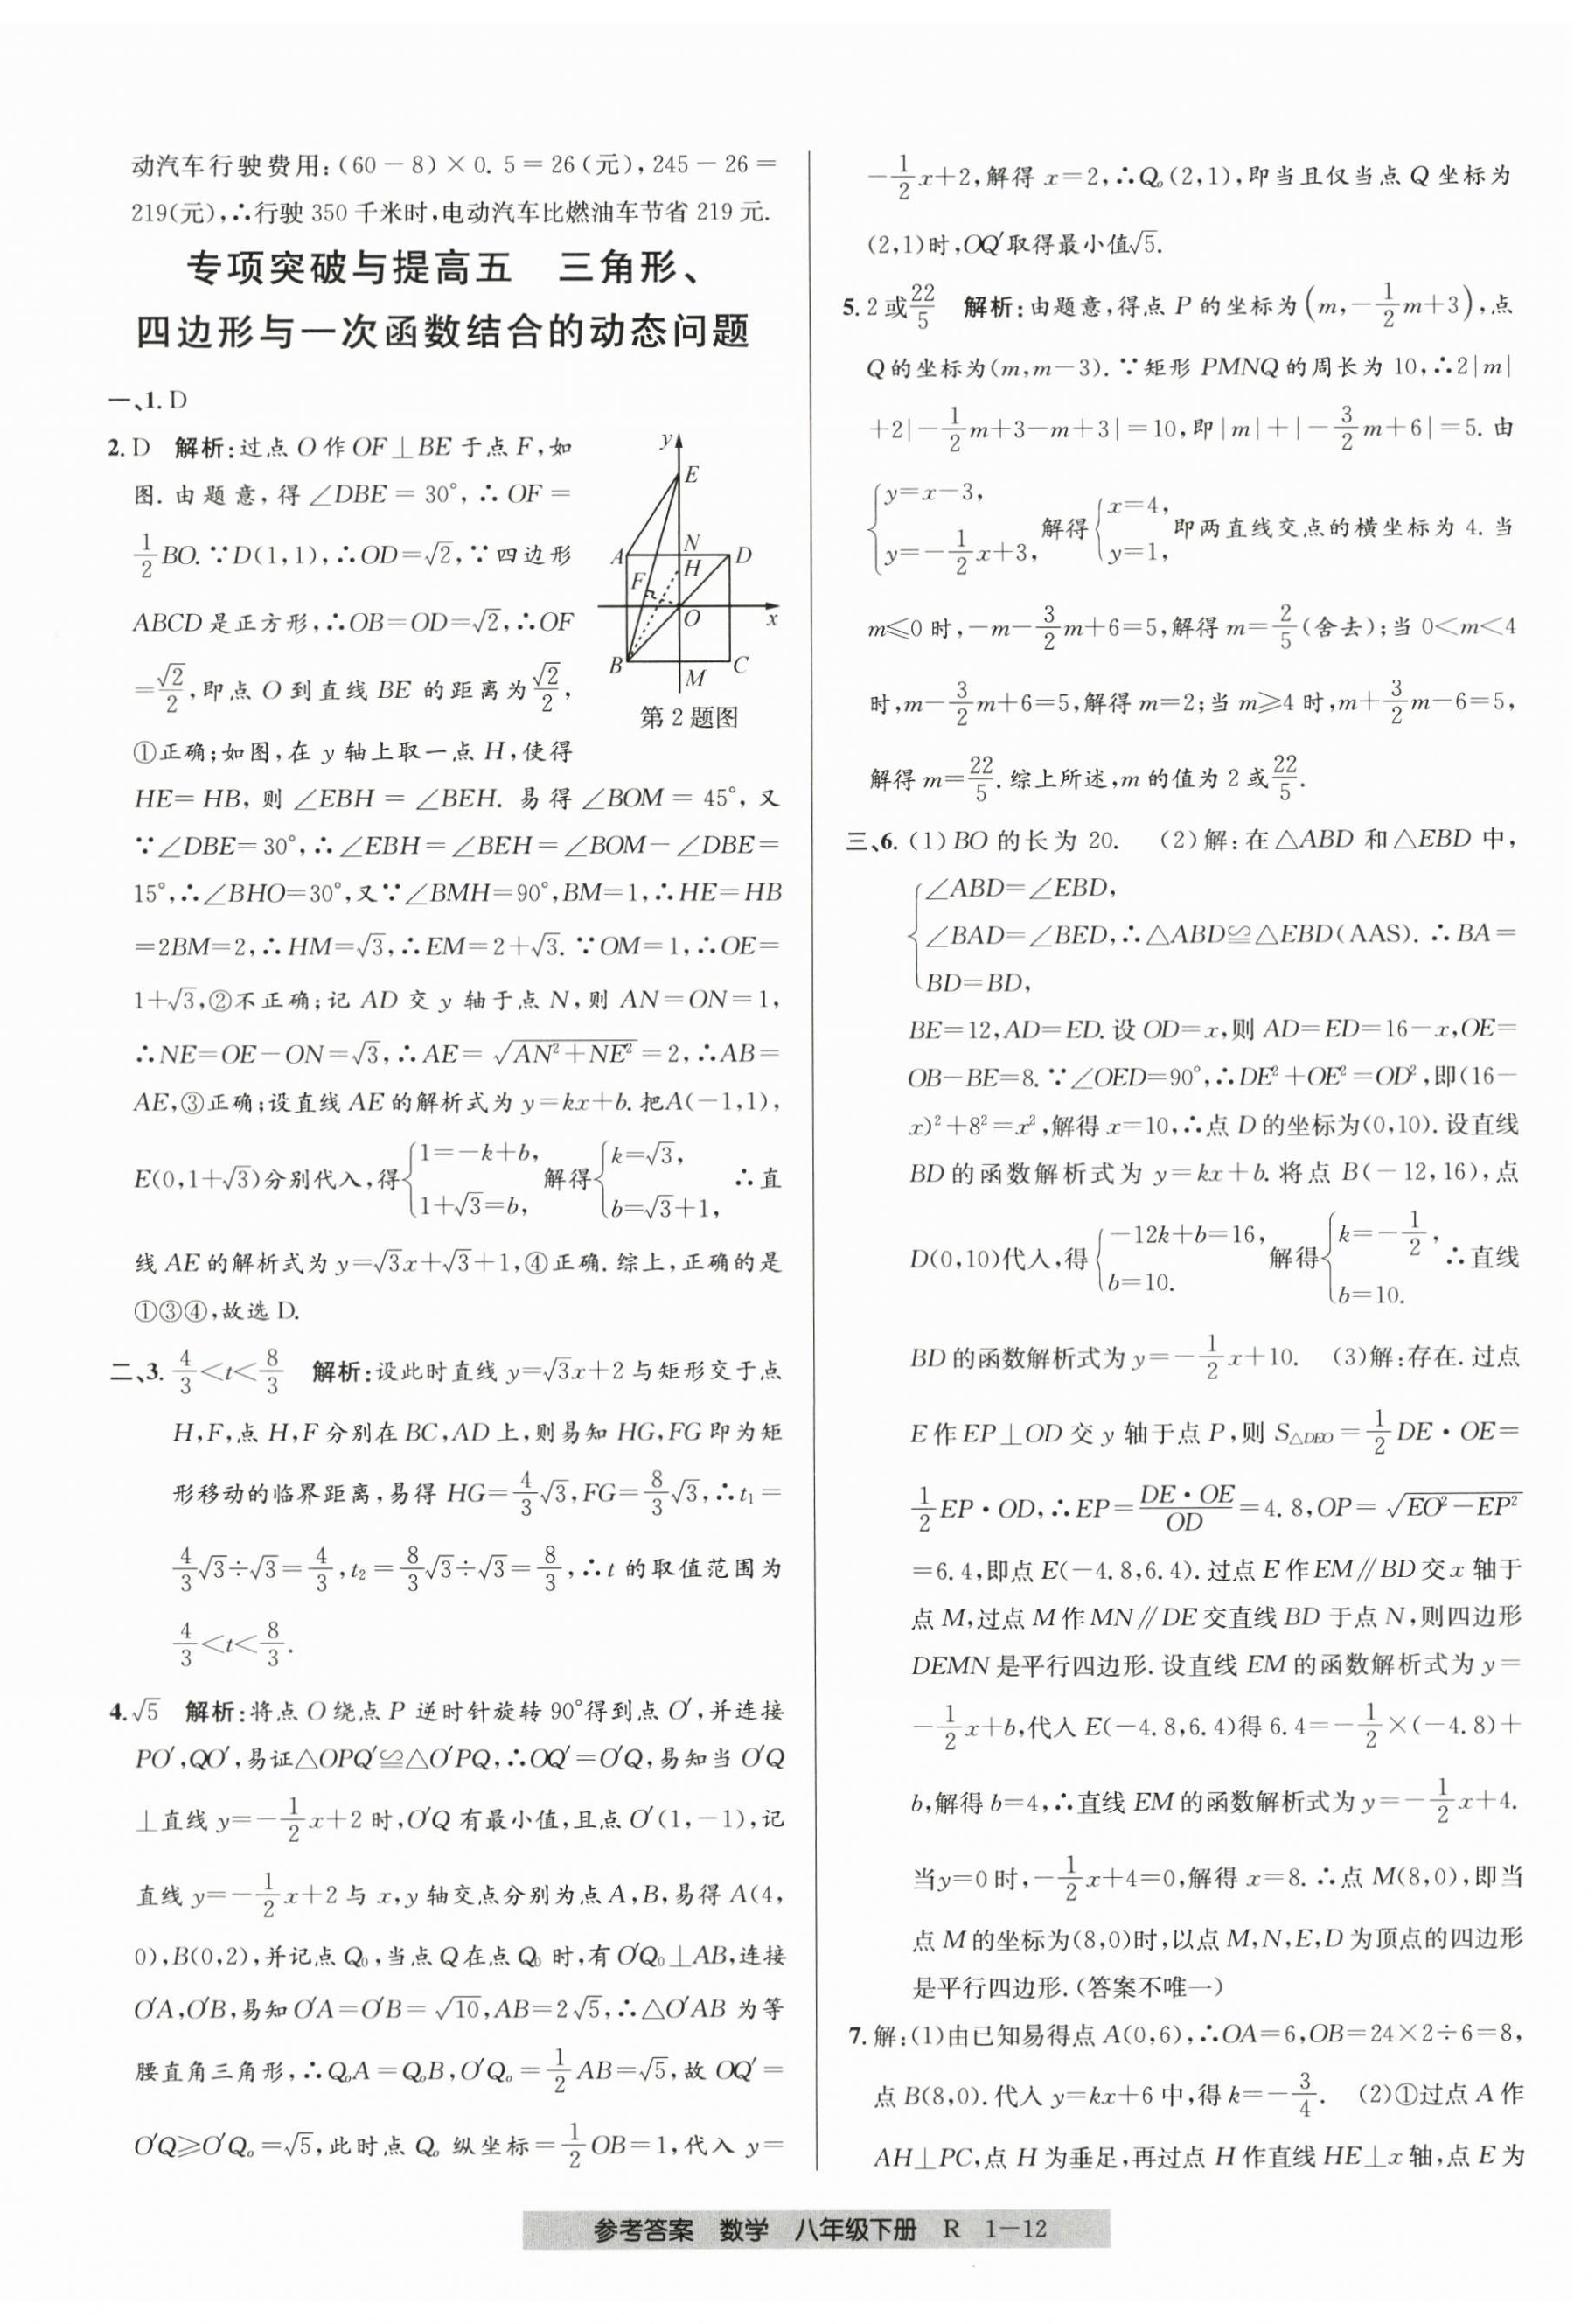 动汽车行驶费用:(60－8)×0.5＝26(元),245－26＝
219(元),∴行驶350千米时,电动汽车比燃油车节省219元.
专项突破与提高五　三角形、
四边形与一次函数结合的动态问题
一、1. D
2. D　解析:过点O作OF⊥BE于点F,如
图.由题意,得∠DBE＝30°,∴OF＝
1/2 BO.∵D(1,1),∴OD＝√2,∵四边形
ABCD是正方形,∴OB＝OD＝√2,∴OF
＝√2/2,即点O到直线BE的距离为√2/2,
①正确;如图,在y轴上取一点H,使得
y
E
A
N
D
H
F
O
x
B
M
C
第2题图
HE＝HB,则∠EBH＝∠BEH.易得∠BOM＝45°,又
∵∠DBE＝30°,∴∠EBH＝∠BEH＝∠BOM－∠DBE＝
15°,∴∠BHO＝30°,又∵∠BMH＝90°,BM＝1,∴HE＝HB
＝2BM＝2,∴HM＝√3,∴EM＝2＋√3.∵OM＝1,∴OE＝
1＋√3,②不正确;记AD交y轴于点N,则AN＝ON＝1,
∴NE＝OE－ON＝√3,∴AE＝√(AN²＋NE²)＝2,∴AB＝
AE,③正确;设直线AE的解析式为y＝kx＋b.把A(－1,1),
E(0,1＋√3)分别代入,得{1＝－k＋b, 1＋√3＝b, 解得{k＝√3, b＝√3＋1, ∴直
线AE的解析式为y＝√3x＋√3＋1,④正确.综上,正确的是
①③④,故选D.
二、3. 4/3＜t＜8/3　解析:设此时直线y＝√3x＋2与矩形交于点
H,F,点H,F分别在BC,AD上,则易知HG,FG即为矩
形移动的临界距离,易得HG＝4/3√3,FG＝8/3√3,∴t₁＝
4/3√3÷√3＝4/3,t₂＝8/3√3÷√3＝8/3,∴t的取值范围为
4/3＜t＜8/3.
4. √5　解析:将点O绕点P逆时针旋转90°得到点O′,并连接
PO′,QO′,易证△OPQ′≌△O′PQ,∴OQ′＝O′Q,易知当O′Q
⊥直线y＝－1/2x＋2时,O′Q有最小值,且点O′(1,－1),记
直线y＝－1/2x＋2与x,y轴交点分别为点A,B,易得A(4,
0),B(0,2),并记点Q₀,当点Q在点Q₀时,有O′Q₀⊥AB,连接
O′A,O′B,易知O′A＝O′B＝√10,AB＝2√5,∴△O′AB为等
腰直角三角形,∴Q₀A＝Q₀B,O′Q₀＝1/2AB＝√5,故OQ′＝
O′Q≥O′Q₀＝√5,此时点Q₀纵坐标＝1/2OB＝1,代入y＝
－1/2x＋2,解得x＝2,∴Q₀(2,1),即当且仅当点Q坐标为
(2,1)时,OQ′取得最小值√5.
5. 2或22/5　解析:由题意,得点P的坐标为(m,－1/2m＋3),点
Q的坐标为(m,m－3).∵矩形PMNQ的周长为10,∴2|m|
＋2|－1/2m＋3－m＋3|＝10,即|m|＋|－3/2m＋6|＝5.由
{y＝x－3, y＝－1/2x＋3, 解得{x＝4, y＝1, 即两直线交点的横坐标为4.当
m≤0时,－m－3/2m＋6＝5,解得m＝2/5(舍去);当0＜m＜4
时,m－3/2m＋6＝5,解得m＝2;当m≥4时,m＋3/2m－6＝5,
解得m＝22/5.综上所述,m的值为2或22/5.
三、6. (1)BO的长为20.　(2)解:在△ABD和△EBD中,
{∠ABD＝∠EBD,
∠BAD＝∠BED,∴△ABD≌△EBD(AAS).∴BA＝
BD＝BD,
BE＝12,AD＝ED.设OD＝x,则AD＝ED＝16－x,OE＝
OB－BE＝8.∵∠OED＝90°,∴DE²＋OE²＝OD²,即(16－
x)²＋8²＝x²,解得x＝10,∴点D的坐标为(0,10).设直线
BD的函数解析式为y＝kx＋b.将点B(－12,16),点
D(0,10)代入,得{－12k＋b＝16, b＝10. 解得{k＝－1/2, b＝10. ∴直线
BD的函数解析式为y＝－1/2x＋10.　(3)解:存在.过点
E作EP⊥OD交y轴于点P,则S△DEO＝1/2DE·OE＝
1/2EP·OD,∴EP＝DE·OE/OD＝4.8,OP＝√(EO²－EP²)
＝6.4,即点E(－4.8,6.4).过点E作EM∥BD交x轴于
点M,过点M作MN∥DE交直线BD于点N,则四边形
DEMN是平行四边形.设直线EM的函数解析式为y＝
－1/2x＋b,代入E(－4.8,6.4)得6.4＝－1/2×(－4.8)＋
b,解得b＝4,∴直线EM的函数解析式为y＝－1/2x＋4.
当y＝0时,－1/2x＋4＝0,解得x＝8.∴点M(8,0),即当
点M的坐标为(8,0)时,以点M,N,E,D为顶点的四边形
是平行四边形.(答案不唯一)
7. 解:(1)由已知易得点A(0,6),∴OA＝6,OB＝24×2÷6＝8,
点B(8,0).代入y＝kx＋6中,得k＝－3/4.　(2)①过点A作
AH⊥PC,点H为垂足,再过点H作直线HE⊥x轴,点E为
参考答案　数学　八年级下册　R　1－12